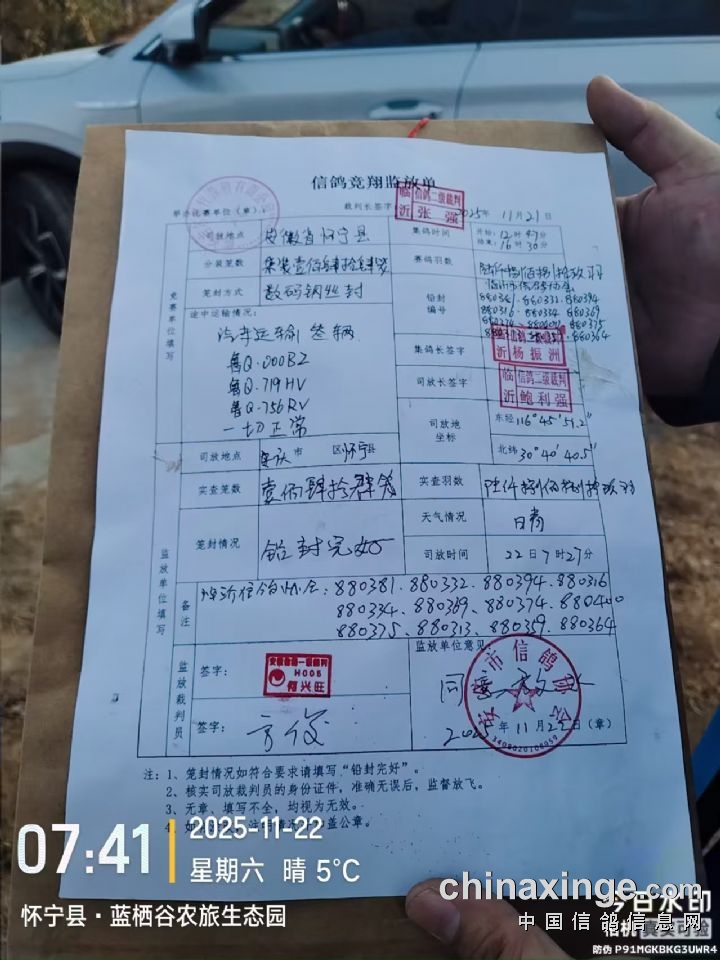 信鸽竞翔监放单
举办比赛单位（章）：
裁判长签字
临沂 信鸽二级裁判 张强
2025年 11月21日
竞赛单位填写
司放地点 安徽省怀宁县
集鸽时间 开始：12时47分
结束：16时30分
分装笼数 集装壹佰肆拾肆笼
赛鸽羽数
笼封方式 数码钢丝封
铅封编号
880381.880332.880394
880316.880334.880369
880364
途中运输情况：
汽车运输 叁辆
鲁Q.000BZ
鲁Q.719HV
鲁Q.756RV
一切正常
集鸽长签字 信鸽二级裁判 杨振洲
司放长签字 临沂 信鸽二级裁判 鲍利强
司放地坐标
东经116°45′51.2″
北纬30°40′40.5″
监放单位填写
司放地点 市 区怀宁县
实查笼数
实查羽数
笼封情况 铅封完好
天气情况 日青
司放时间 22日7时27分
备注
880381.880332.880394.880316
880334.880369.880374.880400
880375.880313.880359.880364
监放裁判员
签字： H005 何兴旺
签字： 方俊
监放单位意见：
市信鸽协会
2025年11月22日（章）
注：1、笼封情况如符合要求请填写“铅封完好”。
2、核实司放裁判员的身份证件，准确无误后，监督放飞。
3、无章、填写不全，均视为无效。
4、
盖公章。
07:41
2025-11-22
星期六 晴 5℃
怀宁县·蓝栖谷农旅生态园
chinaxinge.com
中国信鸽信息网
今日水印
相机 真实可验
防伪 P91MGKBKG3UWR4